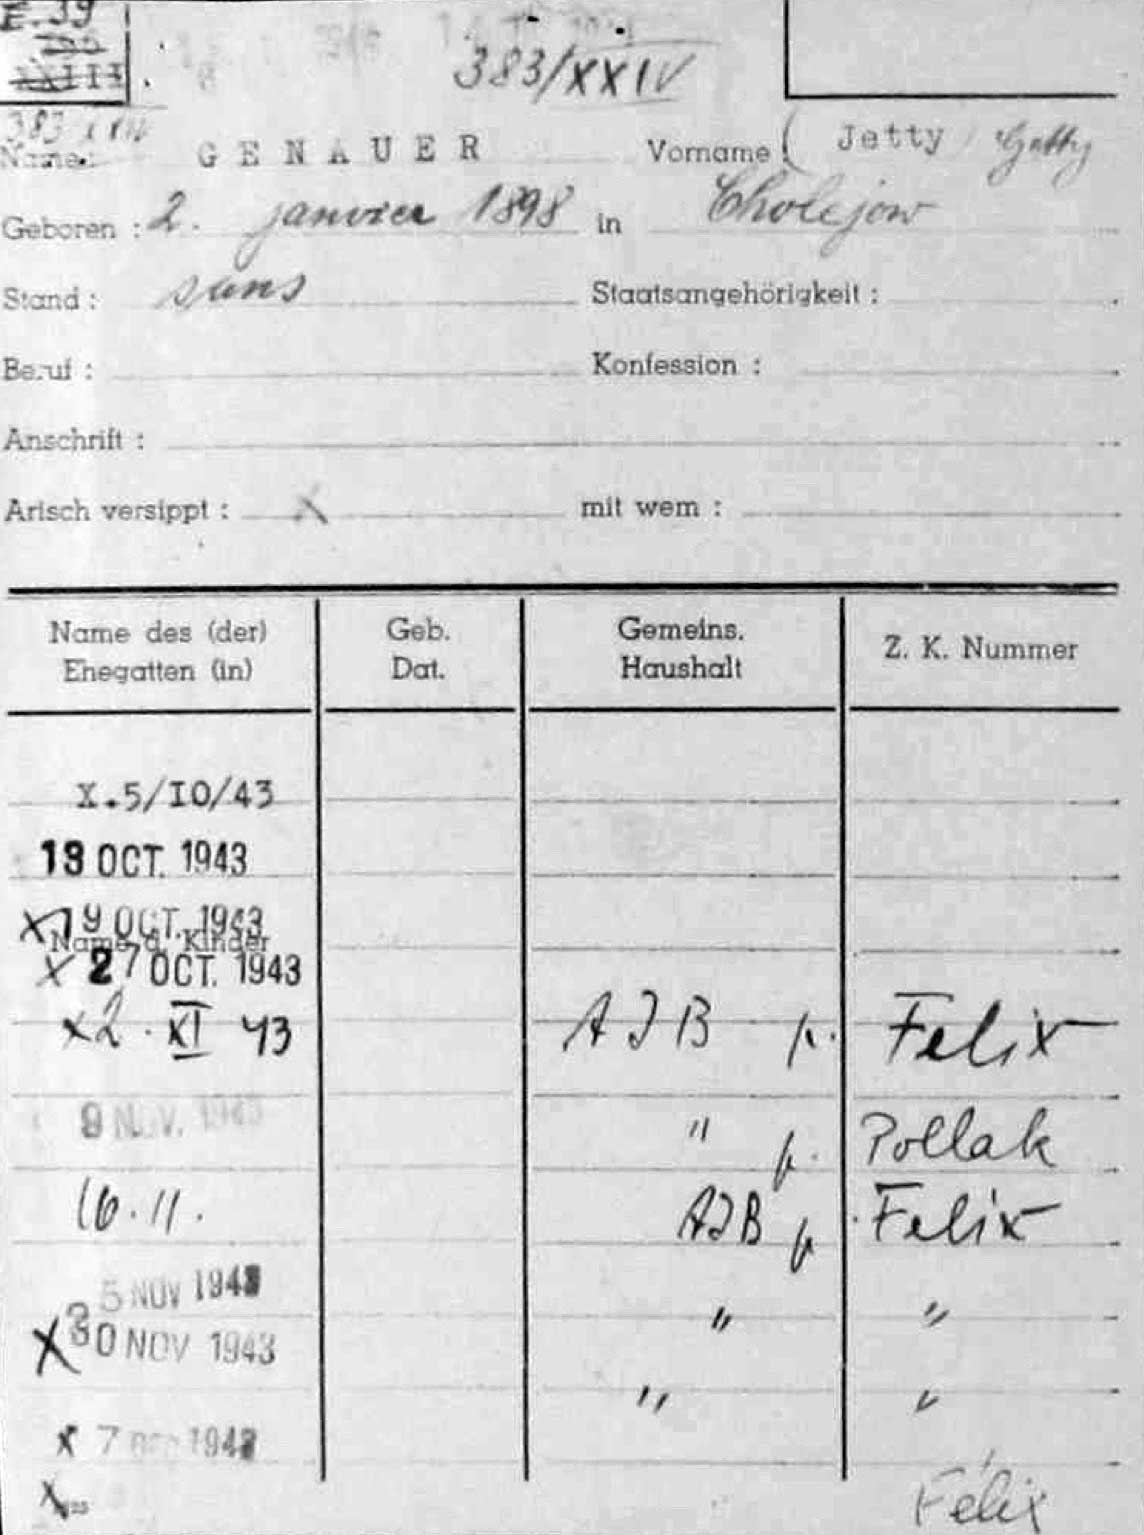 E.39
XXIII
383/XXIV
383 XXIV
Name: GENAUER Vorname ( Jetty ) Getty
Geboren : 2. janvier 1898 in Cholejow
Stand : sans Staatsangehörigkeit :
Beruf : Konfession :
Anschrift :
Arisch versippt : X mit wem :
Name des (der) Ehegatten (in) Geb. Dat. Gemeins. Haushalt Z. K. Nummer
X.5/IO/43
13 OCT. 1943
X 19 OCT. 1943
Name d. Kinder
X 27 OCT. 1943
x2. XI 43 AJB p. Felix
9 NOV. 1943 " p. Pollak
16.11. AJB p. Felix
5 NOV 1943
X 30 NOV 1943 " "
" "
x 7 1943
X Félix